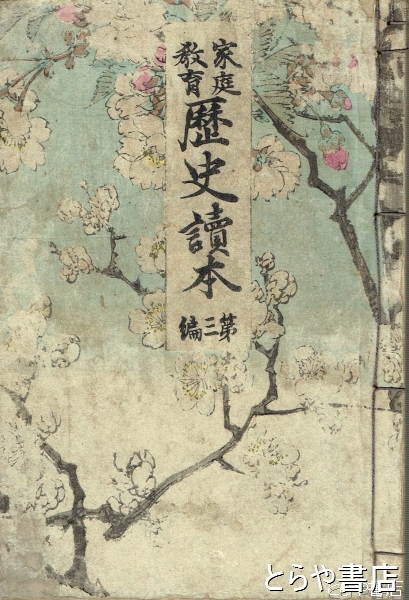 家庭
教育
歷史讀本
第三編
とらや書店